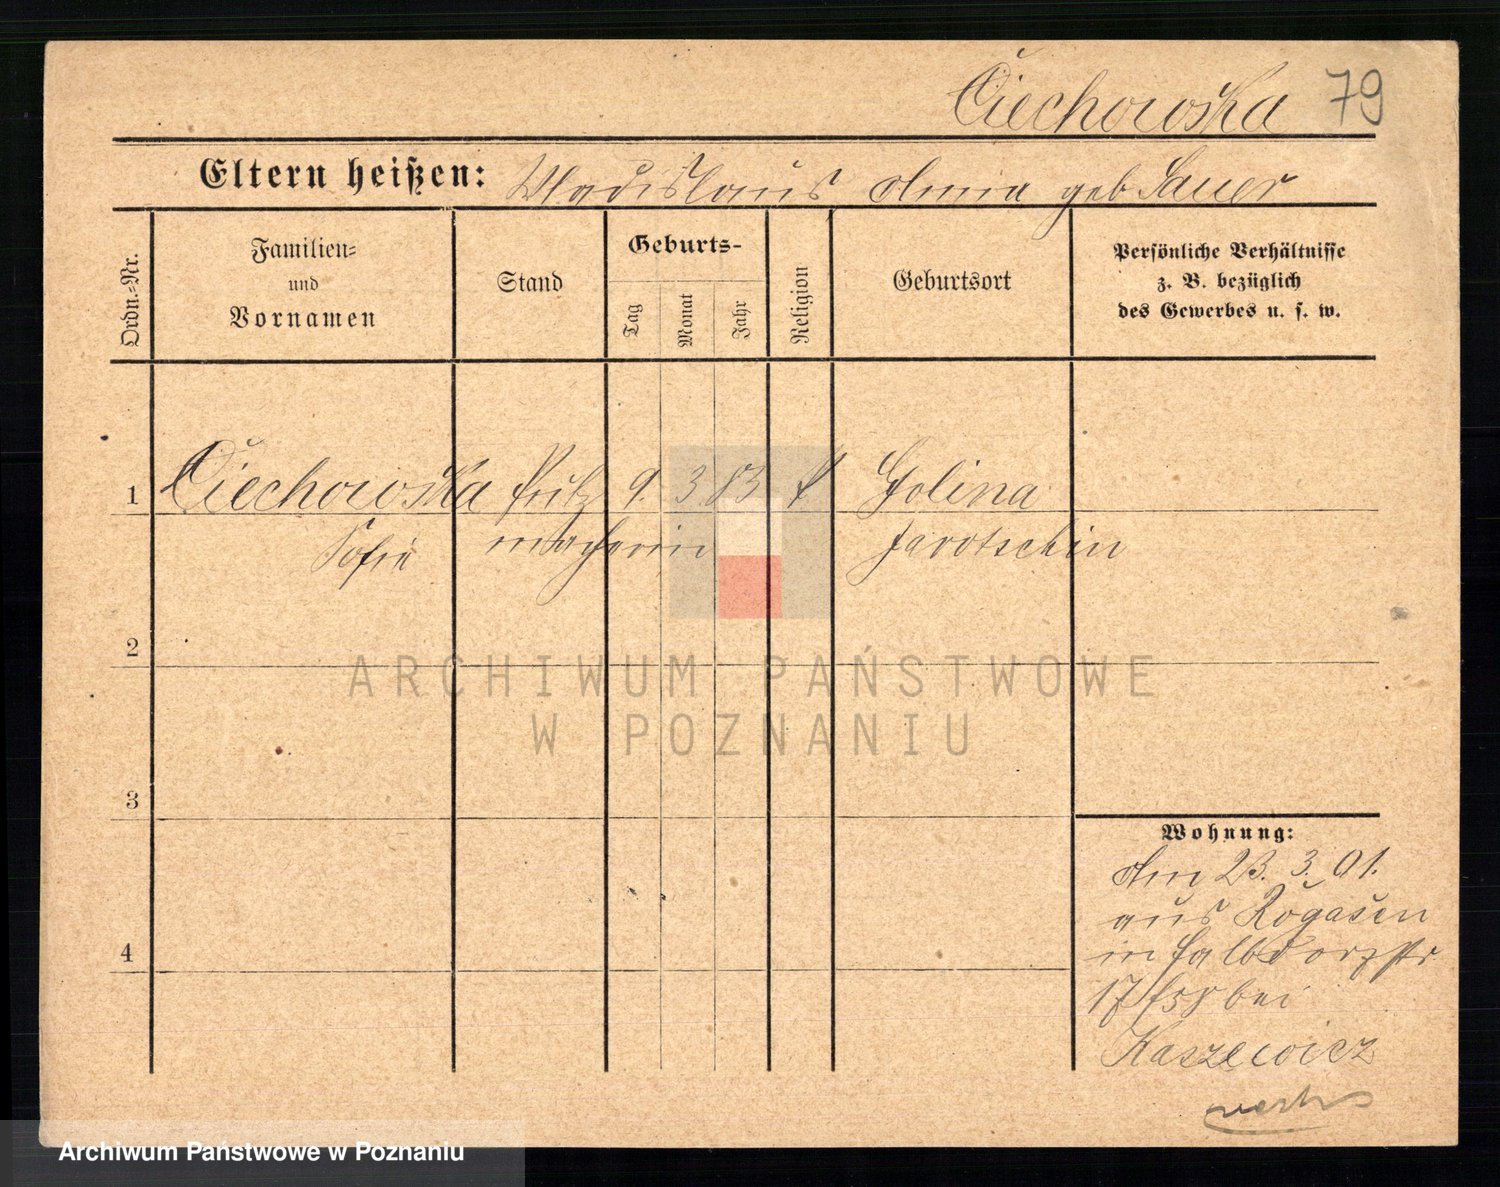 Ciechowska 79
Eltern heißen: Wladislaus Anna geb Sauer
Ordn.-Nr.
Familien-
und
Vornamen
Stand
Geburts-
Tag
Monat
Jahr
Religion
Geburtsort
Persönliche Verhältnisse
z. B. bezüglich
des Gewerbes u. s. w.
1 Ciechowska Putz 9. 3. 83 Golina
Sofie macherin Jarotschin
2
3
4
Wohnung:
Am 23. 3. 01.
aus Rogasen
in Halbdorfstr
17 bei
Kaszewicz
verts
ARCHIWUM PAŃSTWOWE
W POZNANIU
Archiwum Państwowe w Poznaniu